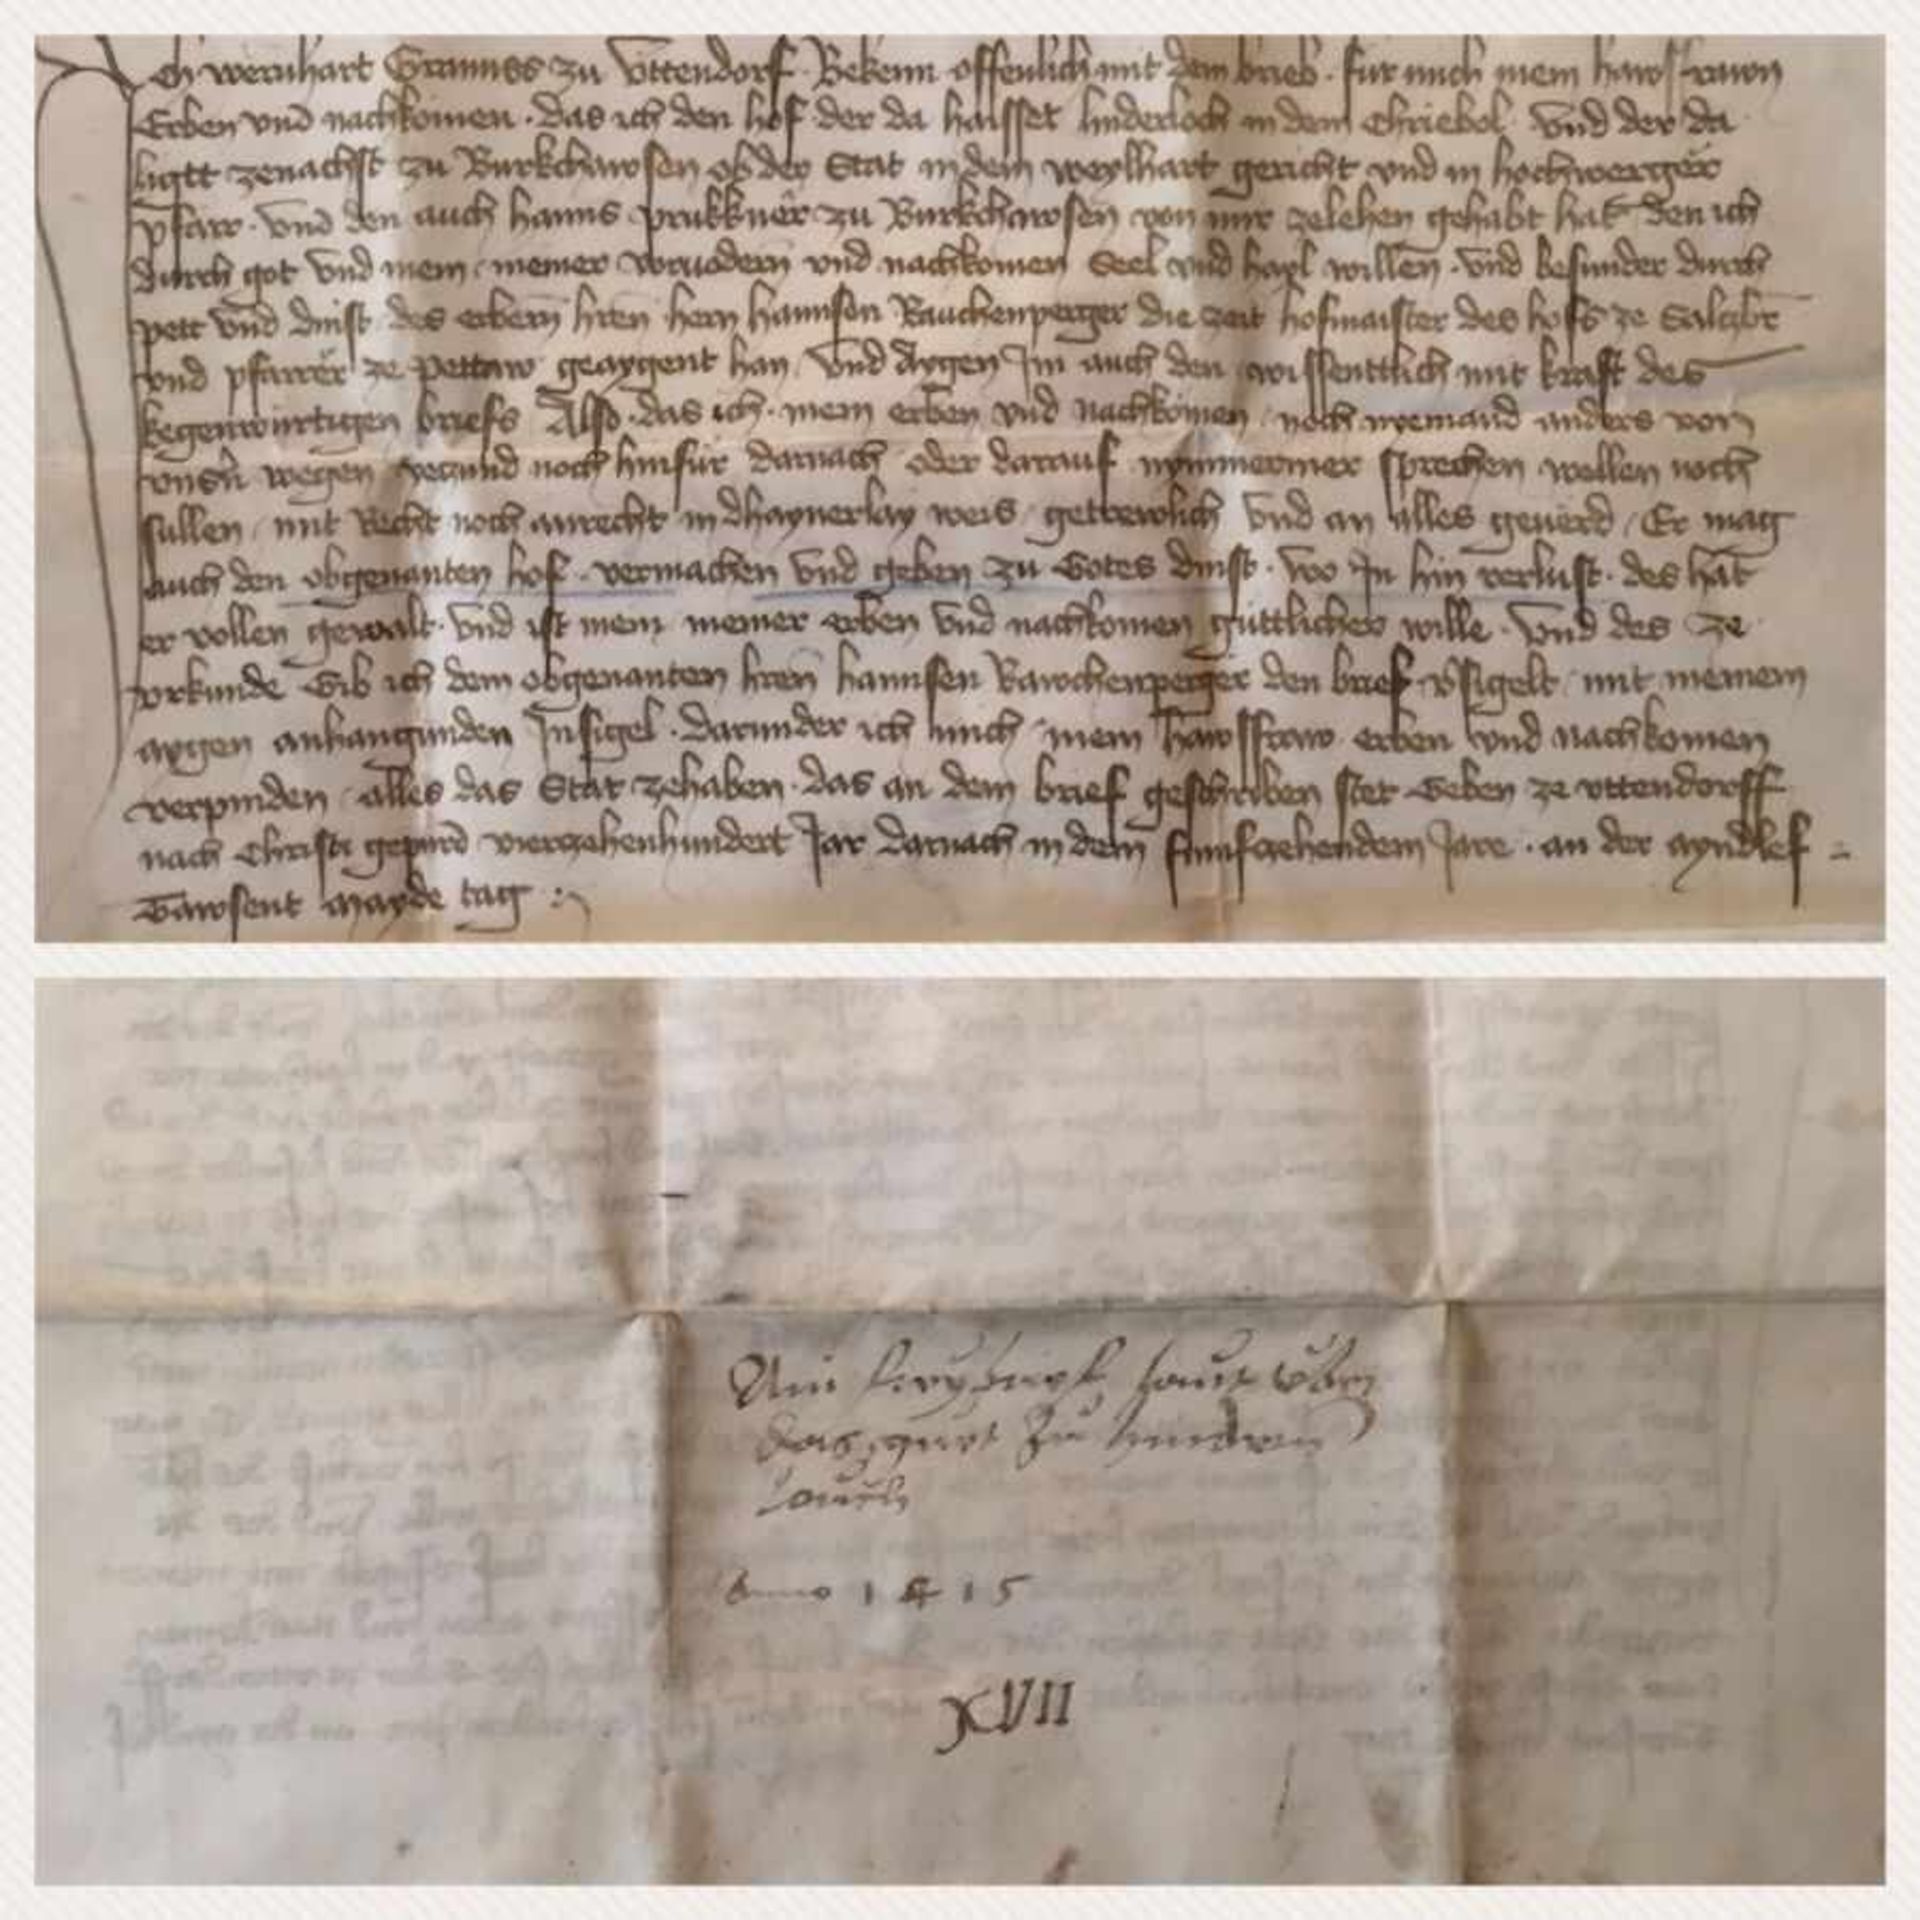 Ich wernhart Grannss zu Vttendorf Bekenn offenlich mit dem brieb · fur mich mein hawsfrawn
Erben vnd nachkomen · das ich den hof der da haisset hinderloch in dem Chriebol · Vnd der da
ligtt zenachst zu Burkchawsen ob der Stat in dem weylhart gericht vnd in hochwerger
pfarr · vnd den auch hanns prukkner zu Burkchawsen von mir zelehen gehabt hat den ich
durch got Vnd mein meiner voruodern vnd nachkomen Seel vnd hayl willen · Vnd besunder durch
pett Vnd dinst des erbern hren hern hannsen Rauchenperger die zeit hofmaister des hofs ze Saltzbr
vnd pfarrer ze Pettaw geaygent han Vnd Aygen Im auch den wissenttlich mit kraft des
kegenwurtigen briefs Also · das ich · mein erben vnd nachkomen noch nyemand anders von
vnsn wegen yeczund noch hinfur darnach oder darauf nymmermer sprechen wellen noch
sullen mit Recht noch anrecht in dhaynerlay weis getrewlich Vnd an alles geuerd / Er mag
auch den obgenanten hof · vermachen Vnd geben zu Gotes dinst · wo In hin verlust · des hat
er vollen gewalt · Vnd ist mein meiner erben Vnd nachkomen guttlicher wille · Vnd des ze
vrkunde Gib ich dem obgenanten hren hannsen Rawchenperger den brief vsigelt mit meinem
aygen anhangunden Insigel · darunder ich mich mein hawsfraw erben vnd nachkomen
verpinden alles das Stat zehaben · das an dem brief geschriben stet Geben ze vttendorff
nach Christi gepurd vierzehenhundert Jar darnach in dem funfczehendem Jare · an der ayndlef
Tawsent mayde tag :
Ain laut vber
das guet zu hindern
Loch
Anno 1415
XVII